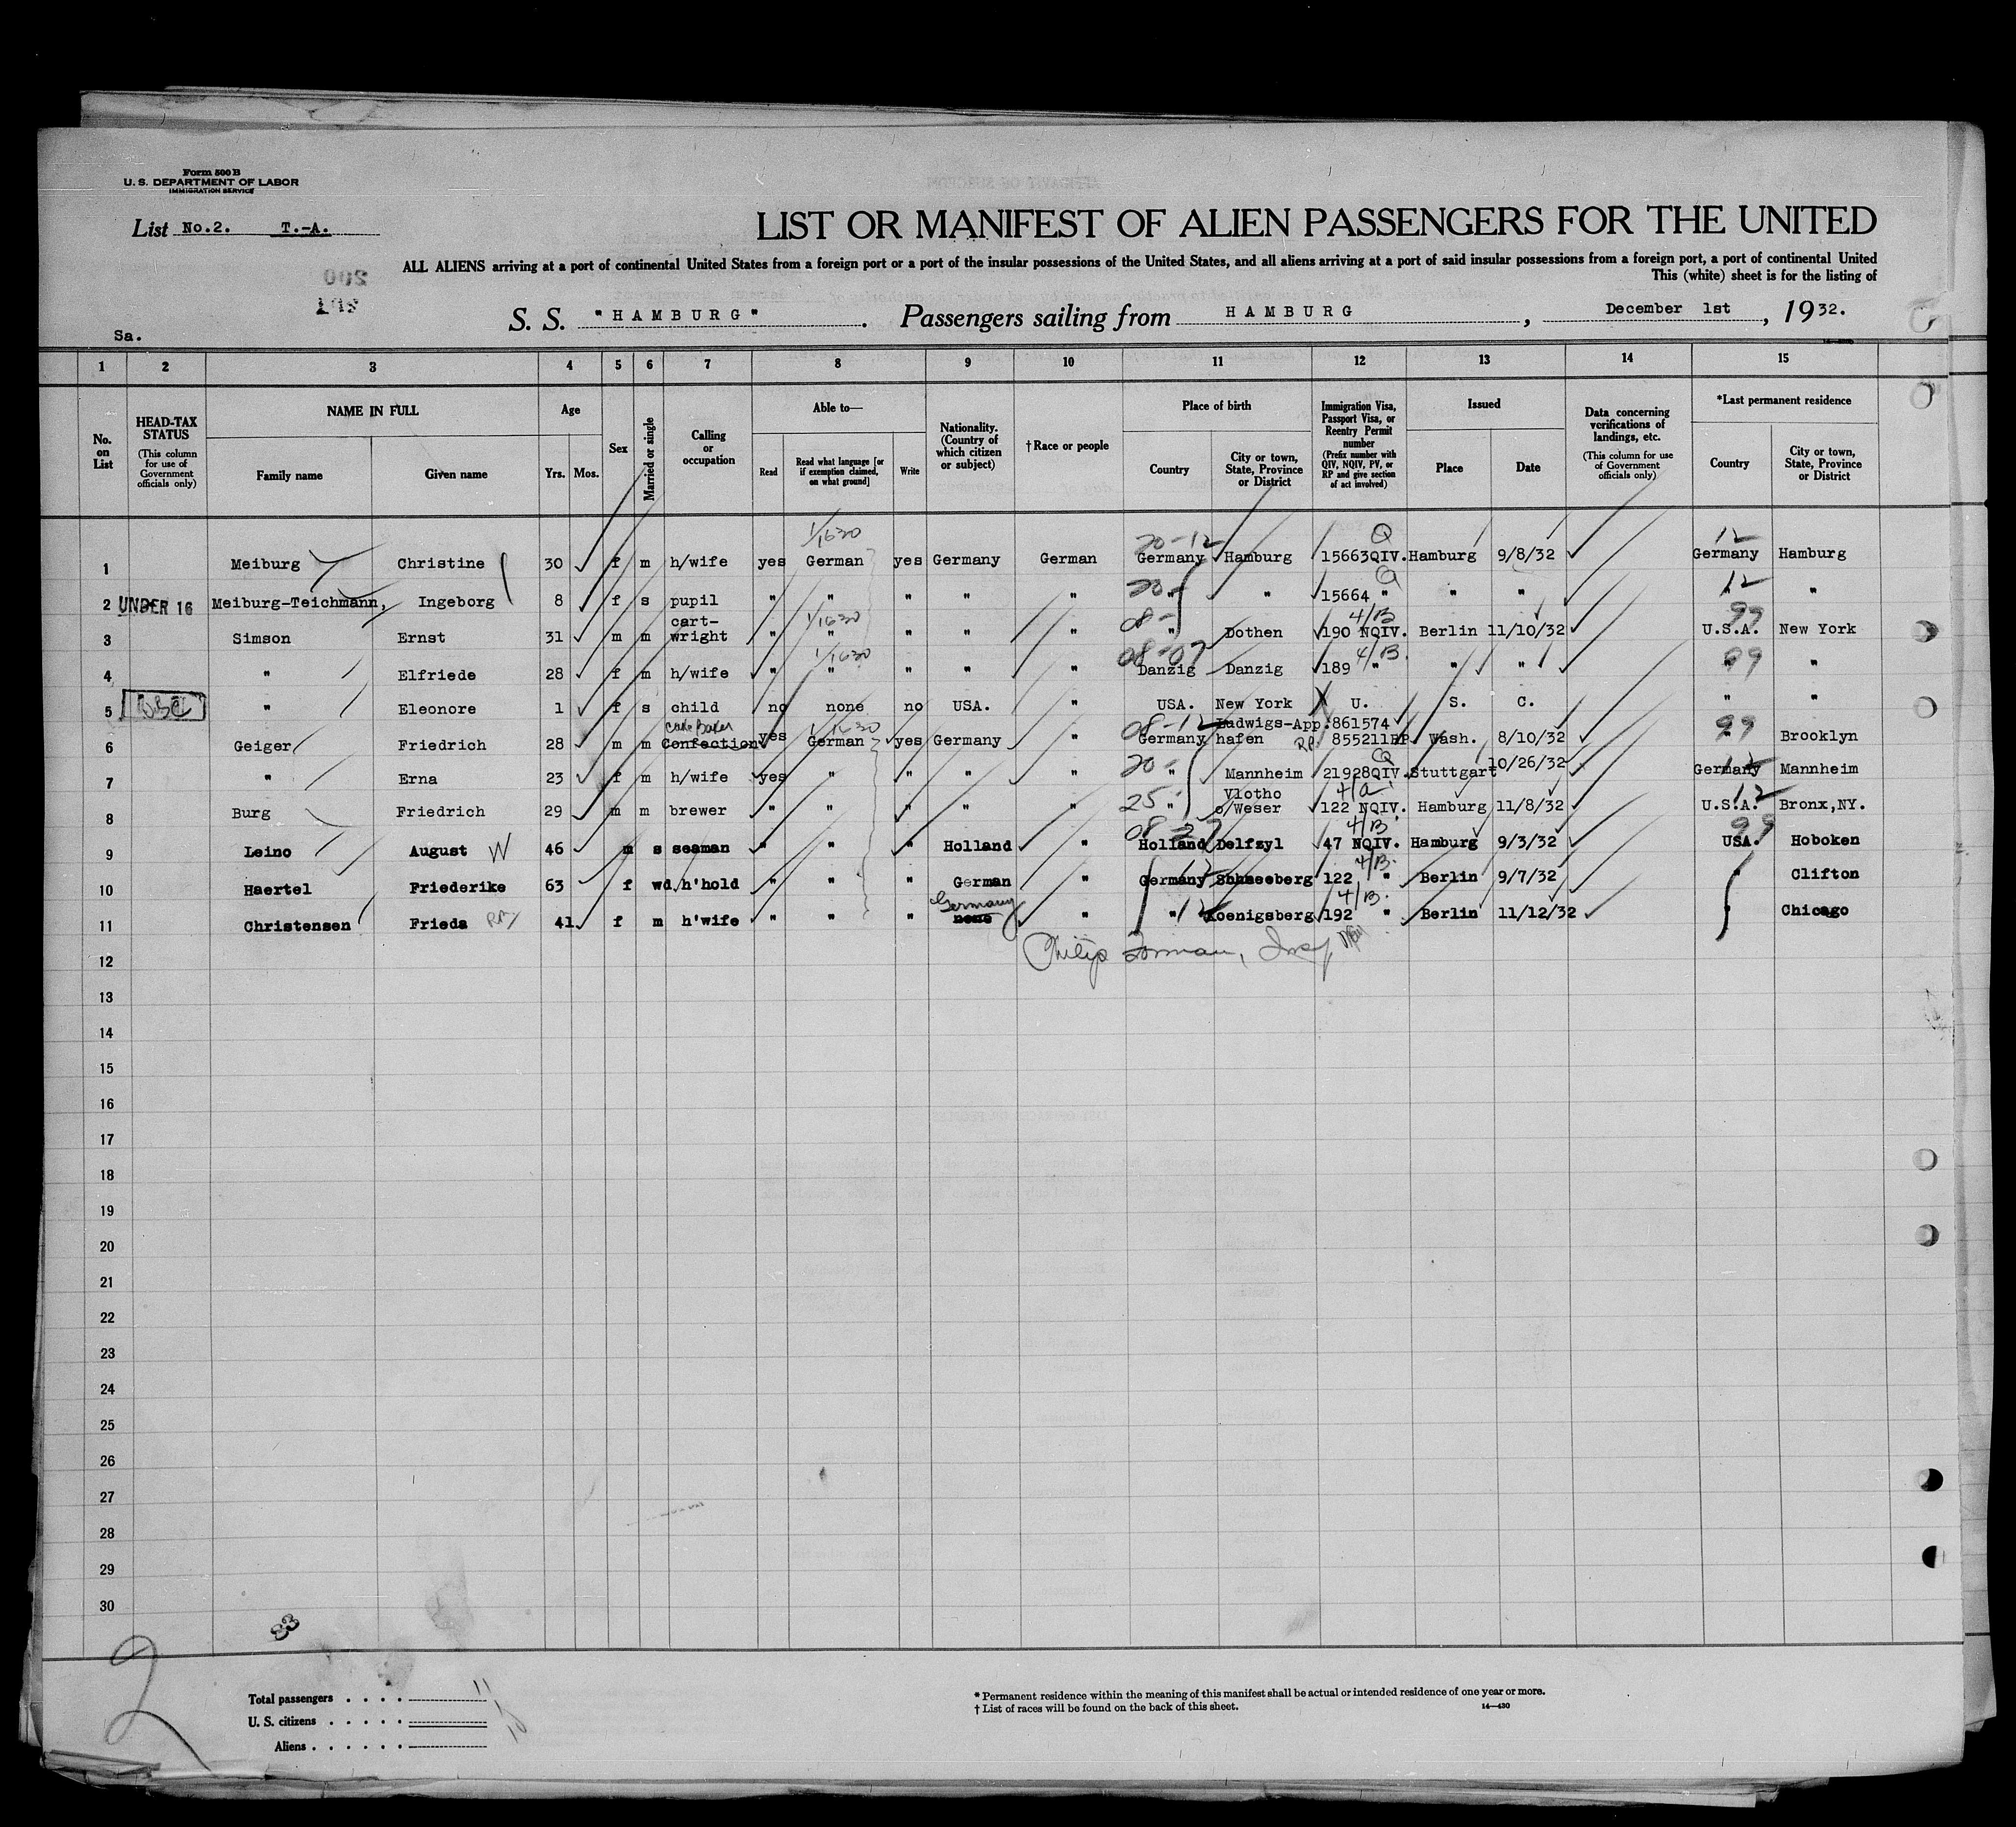 Form 500 B
U. S. DEPARTMENT OF LABOR
IMMIGRATION SERVICE
List No.2. T.-A.
LIST OR MANIFEST OF ALIEN PASSENGERS FOR THE UNITED
ALL ALIENS arriving at a port of continental United States from a foreign port or a port of the insular possessions of the United States, and all aliens arriving at a port of said insular possessions from a foreign port, a port of continental United
This (white) sheet is for the listing of
200
198
Sa.
S. S. "HAMBURG". Passengers sailing from HAMBURG, December 1st, 1932.
1 2 3 4 5 6 7 8 9 10 11 12 13 14 15
No. on List
HEAD-TAX STATUS (This column for use of Government officials only)
NAME IN FULL
Family name Given name
Age
Yrs. Mos.
Sex
Married or single
Calling or occupation
Able to—
Read
Read what language [or if exemption claimed, on what ground]
Write
Nationality. (Country of which citizen or subject)
† Race or people
Place of birth
Country
City or town, State, Province or District
Immigration Visa, Passport Visa, or Reentry Permit number (Prefix number with QIV, NQIV, PV, or RP and give section of act involved)
Issued
Place Date
Data concerning verifications of landings, etc. (This column for use of Government officials only)
*Last permanent residence
Country
City or town, State, Province or District
1/1630 20-12 Q 12
1 Meiburg Christine 30 f m h/wife yes German yes Germany German Germany Hamburg 15663QIV. Hamburg 9/8/32 Germany Hamburg
20- Q 12
2 UNDER 16 Meiburg-Teichmann, Ingeborg 8 f s pupil " " " " " " " 15664 " " " " "
1/1630 08- 4/B 99
3 Simson Ernst 31 m m cart-wright " " " " " " Dothen 190 NQIV. Berlin 11/10/32 U.S.A. New York
1/1630 08-07 4/B. 99
4 " Elfriede 28 f m h/wife " " " " " Danzig Danzig 189 " " " " "
5 USC " Eleonore 1 f s child no none no USA. " USA. New York U. S. C. " "
Cake Baker 1/1630 08-12 99
6 Geiger Friedrich 28 m m Confection yes German yes Germany " Germany Ludwigs-hafen App. 861574 RP. 855211RP. Wash. 8/10/32 " Brooklyn
20- Q 12
7 " Erna 23 f m h/wife yes " " " " " Mannheim 21928QIV. Stuttgart 10/26/32 Germany Mannheim
25- 4/a. 12
8 Burg Friedrich 29 m m brewer " " " " " " Vlotho o/Weser 122 NQIV. Hamburg 11/8/32 U.S.A. Bronx,NY.
08-27 4/B 99
9 Leino August W 46 m s seaman " " " Holland " Holland Delfzyl 47 NQIV. Hamburg 9/3/32 USA. Hoboken
12 4/B.
10 Haertel Friederike 63 f wd. h'hold " " " German " Germany Schneeberg 122 " Berlin 9/7/32 " Clifton
Germany 12 4/B.
11 Christensen Frieda 41 f m h'wife " " " none " " Koenigsberg 192 " Berlin 11/12/32 " Chicago
12
13
14
15
16
17
18
19
20
21
22
23
24
25
26
27
28
29
30
83
2
Total passengers . . . . 11
U. S. citizens . . . . .
Aliens . . . . . .
* Permanent residence within the meaning of this manifest shall be actual or intended residence of one year or more.
† List of races will be found on the back of this sheet. 14—430